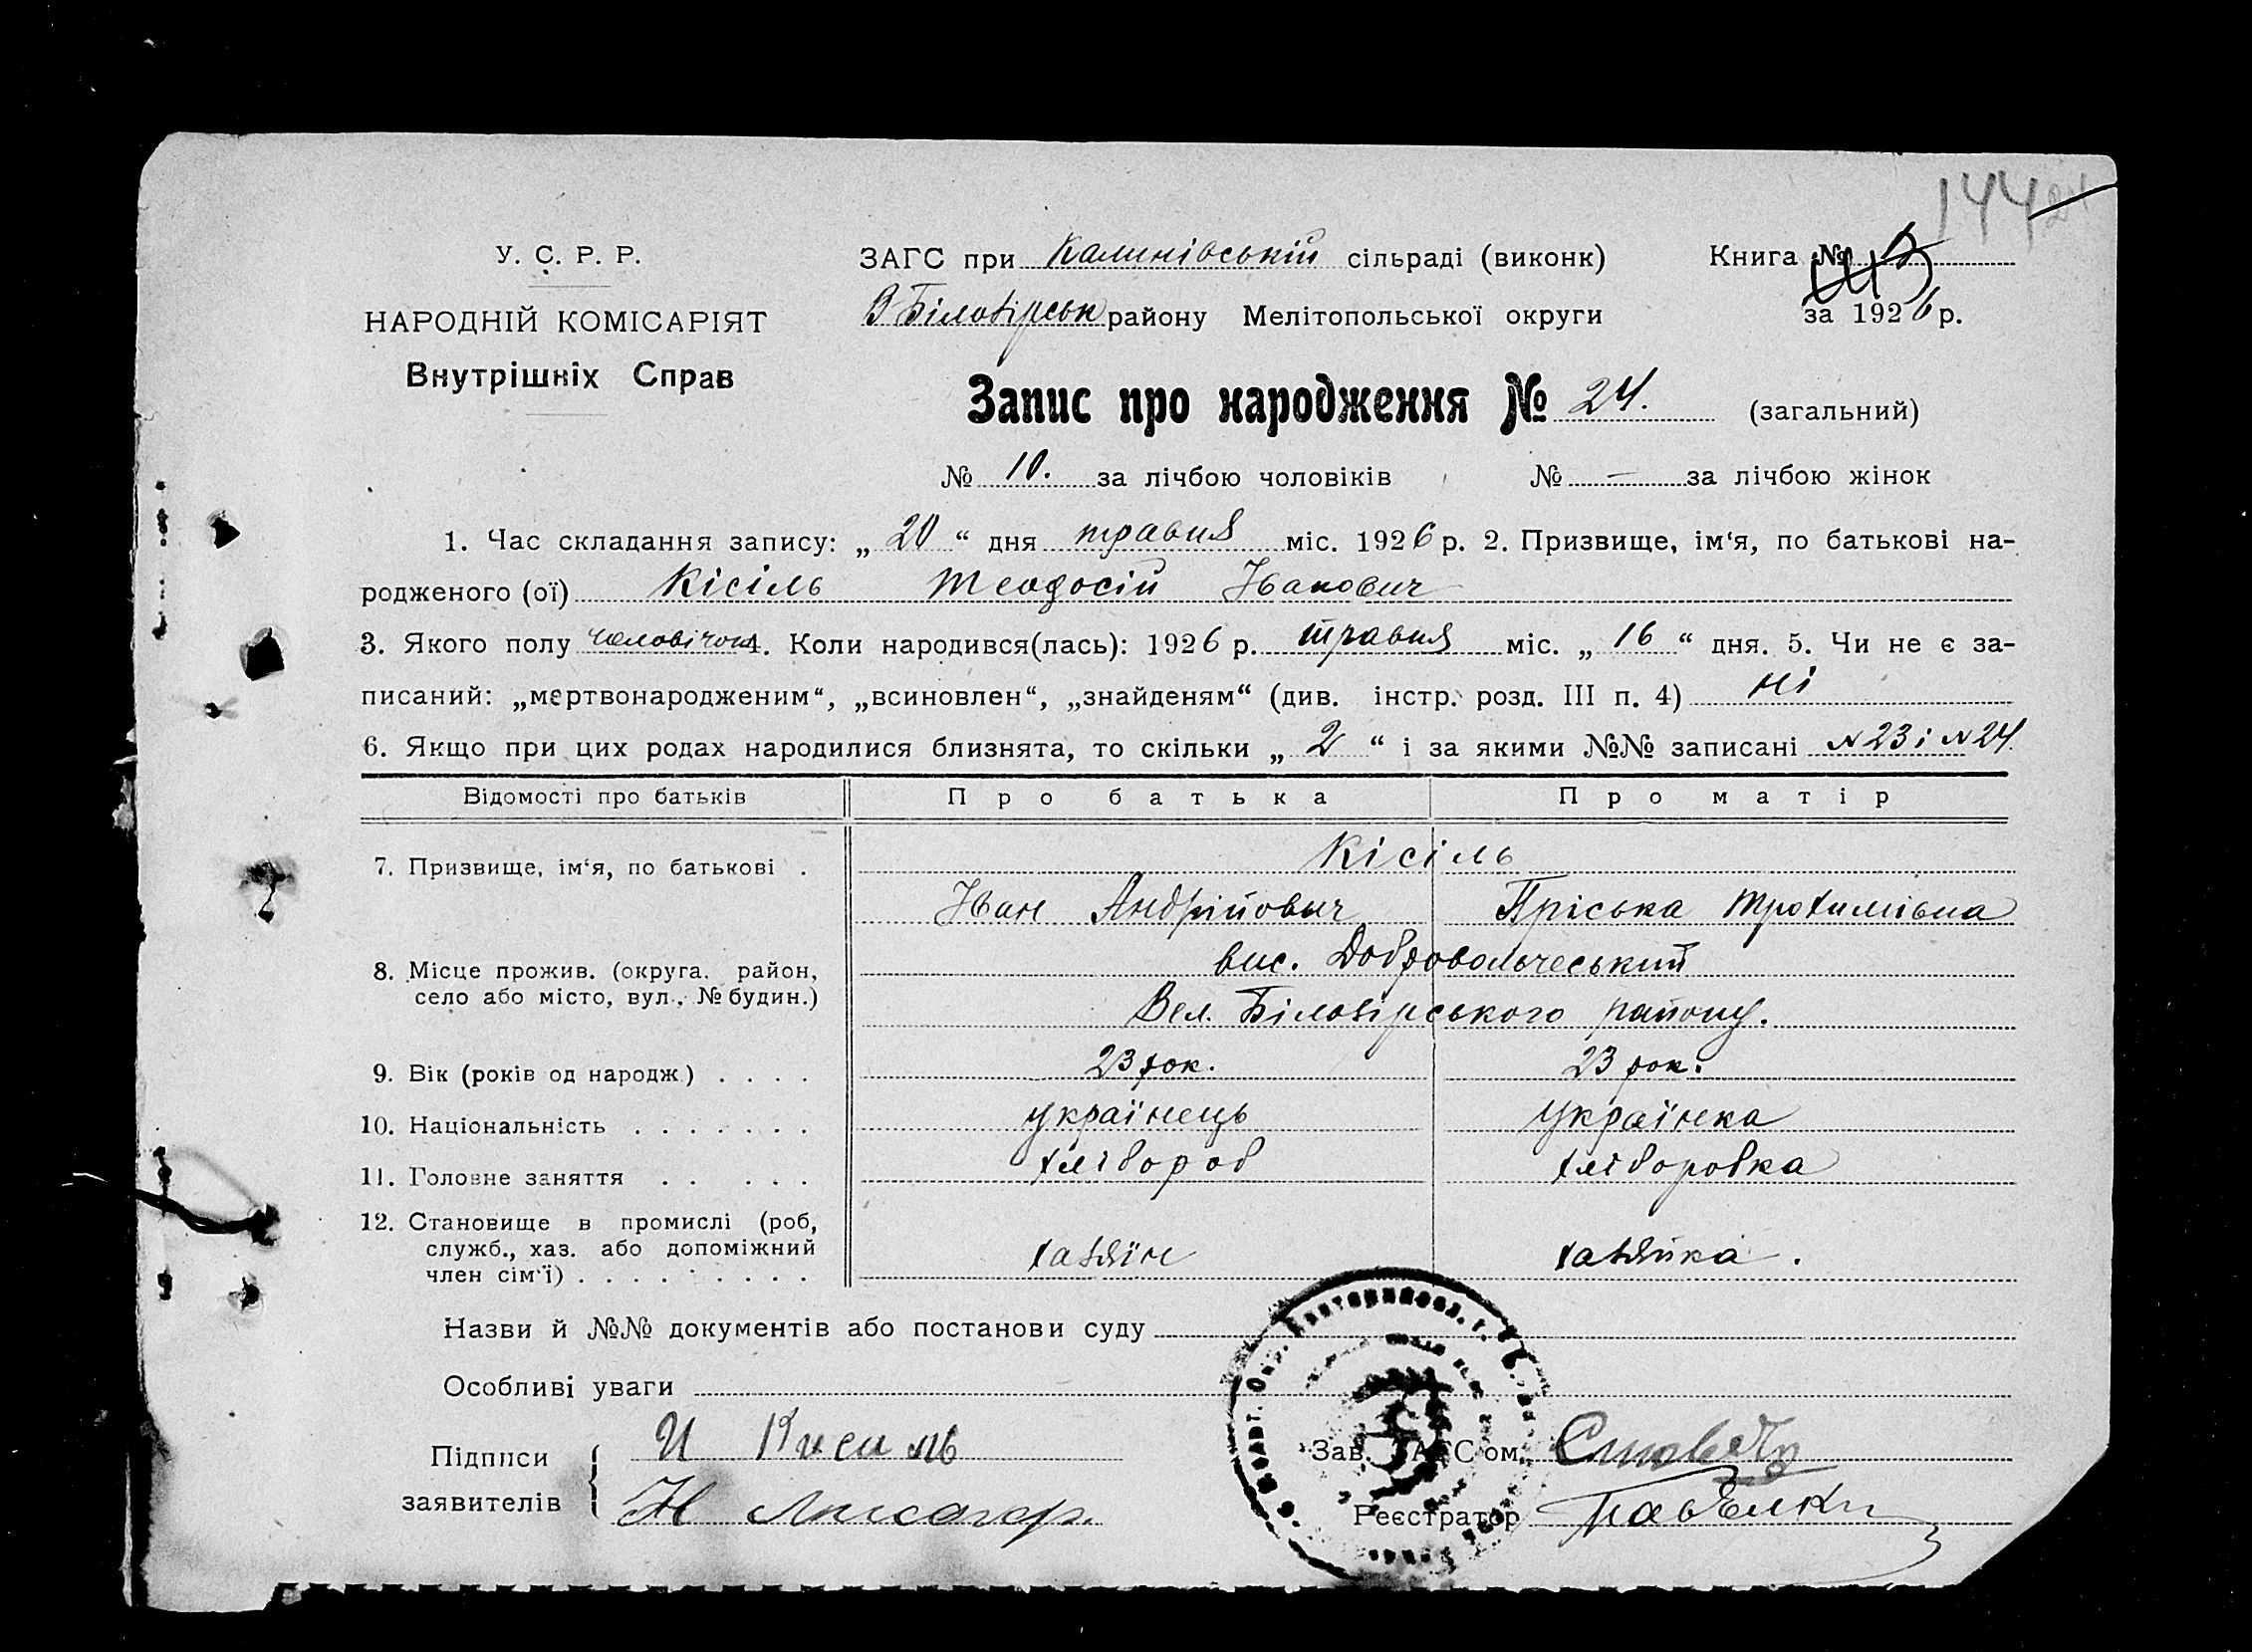 144
У. С. Р. Р.
НАРОДНІЙ КОМІСАРІЯТ
Внутрішніх Справ
ЗАГС при Калинівській сільраді (виконк)
В-Білозірськ району Мелітопольської округи
Книга №
за 1926 р.
Запис про народження № 24. (загальний)
№ 10. за лічбою чоловіків № — за лічбою жінок
1. Час складання запису: „20“ дня травня міс. 1926 р. 2. Призвище, ім‘я, по батькові на-
родженого (ої) Кісіль Теодосій Іванович
3. Якого полу чоловічого 4. Коли народився(лась): 1926 р. травня міс. „16“ дня. 5. Чи не є за-
писаний: „мертвонародженим“, „всиновлен“, „знайденям“ (див. інстр. розд. III п. 4) ні
6. Якщо при цих родах народилися близнята, то скільки „2“ і за якими №№ записані №23 і №24.
Відомості про батьків Про батька Про матір
7. Призвище, ім‘я, по батькові . Кісіль
Іван Андрійович Пріська Трохимівна
8. Місце прожив. (округа, район,
село або місто, вул., № будин.)
вис. Добровольчеський
Вел. Білозірського району.
9. Вік (років од народж.) . . . . 23 рок. 23 рок.
10. Національність . . . . . . . українець українка
11. Головне заняття . . . . . хлібороб хліборобка
12. Становище в промислі (роб,
служб., хаз. або допоміжний
член сім‘ї) . . . . . . . . . хазяїн хазяйка.
Назви й №№ документів або постанови суду
Особливі уваги
Підписи
заявителів
И Кисиль
Н
Зав. ЗАГС‘ом
Реєстратор